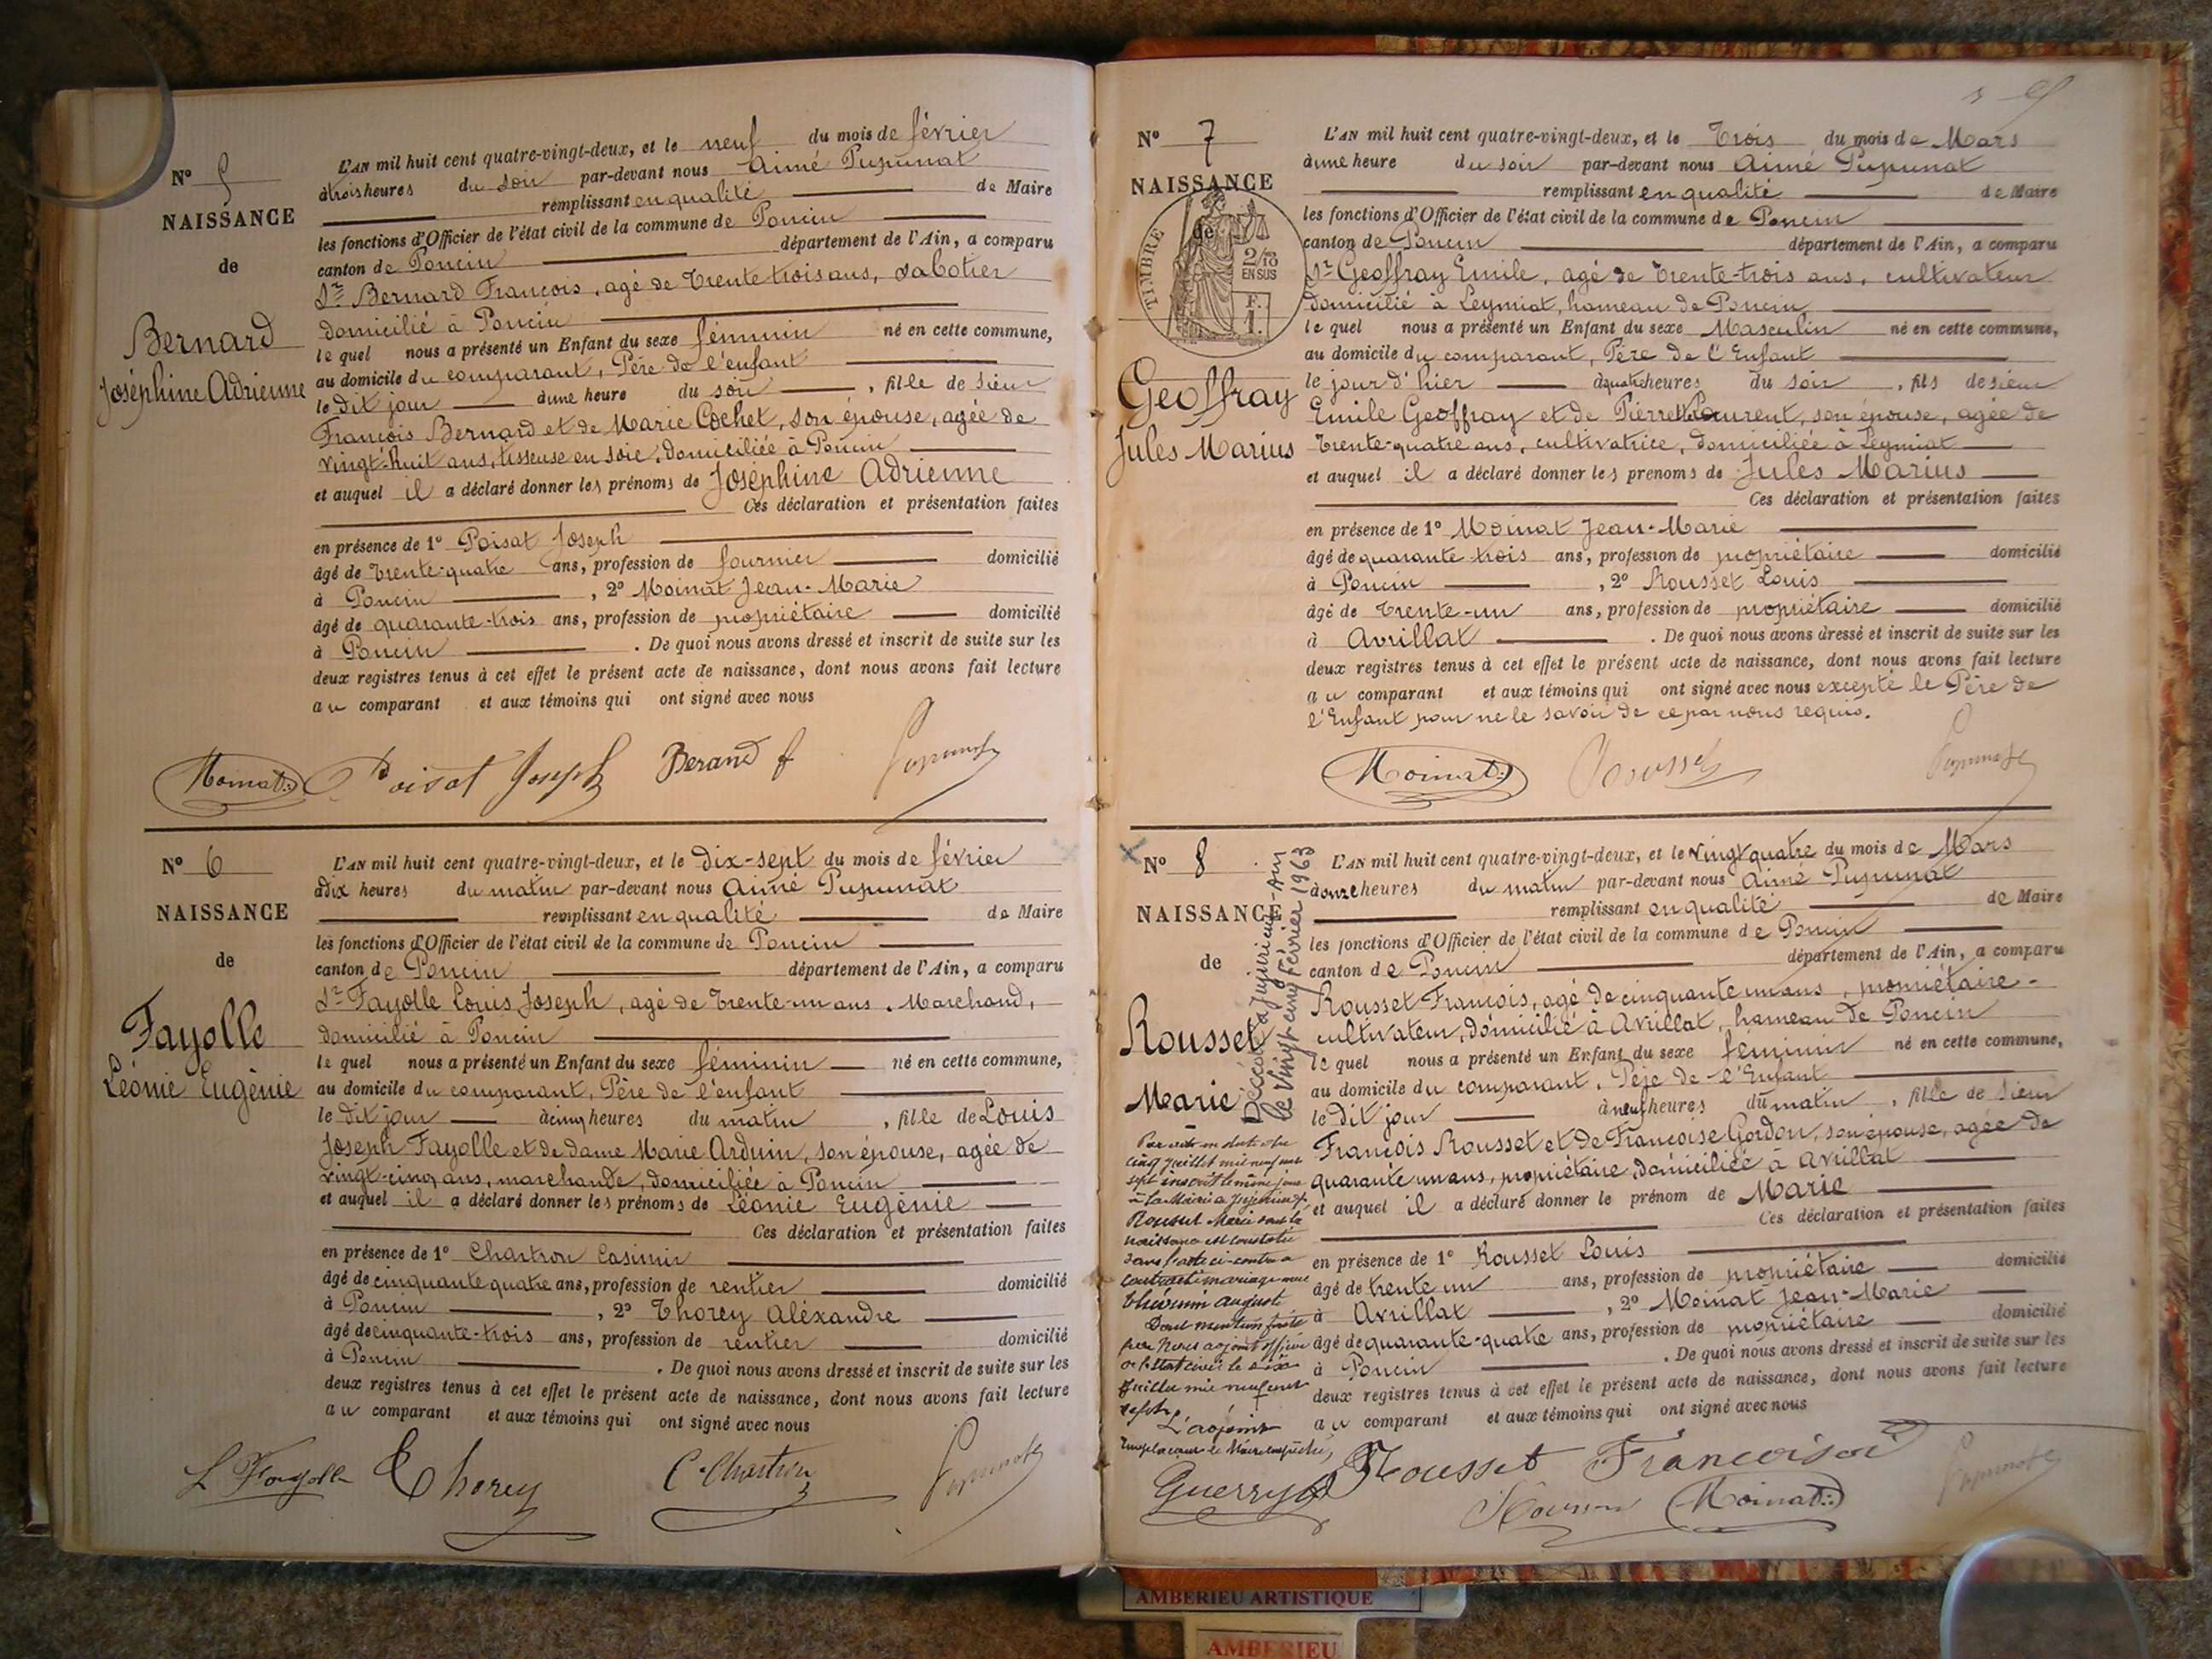 N° 5
NAISSANCE
de
Bernard
Joséphine Adrienne
L'AN mil huit cent quatre-vingt-deux, et le neuf du mois de février
à trois heures du soir par-devant nous Aimé Pupunat
remplissant en qualité de Maire
les fonctions d'Officier de l'état civil de la commune de Poncin
canton de Poncin département de l'Ain, a comparu
Sr Bernard François, agé de trente trois ans, sabotier
domicilié à Poncin
le quel nous a présenté un Enfant du sexe féminin né en cette commune,
au domicile du comparant, Père de l'enfant
le dit jour à une heure du soir, fille de sieur
François Bernard et de Marie Cochet, son épouse, agée de
vingt-huit ans, tisseuse en soie, domiciliée à Poncin
et auquel il a déclaré donner les prénoms de Joséphine Adrienne
Ces déclaration et présentation faites
en présence de 1° Poisat Joseph
âgé de trente-quatre ans, profession de fournier domicilié
à Poncin, 2° Moinat Jean-Marie
âgé de quarante-trois ans, profession de propriétaire domicilié
à Poncin. De quoi nous avons dressé et inscrit de suite sur les
deux registres tenus à cet effet le présent acte de naissance, dont nous avons fait lecture
au comparant et aux témoins qui ont signé avec nous
Moinat Poisat Joseph Berand f Pupunat
N° 6
NAISSANCE
de
Fayolle
Léonie Eugénie
L'AN mil huit cent quatre-vingt-deux, et le dix-sept du mois de février
à dix heures du matin par-devant nous Aimé Pupunat
remplissant en qualité de Maire
les fonctions d'Officier de l'état civil de la commune de Poncin
canton de Poncin département de l'Ain, a comparu
Sr Fayolle Louis Joseph, agé de trente-un ans, Marchand,
domicilié à Poncin
le quel nous a présenté un Enfant du sexe féminin né en cette commune,
au domicile du comparant, Père de l'enfant
le dit jour à cinq heures du matin, fille de Louis
Joseph Fayolle et de dame Marie Arduin, son épouse, agée de
vingt-cinq ans, marchande, domiciliée à Poncin
et auquel il a déclaré donner les prénoms de Léonie Eugénie
Ces déclaration et présentation faites
en présence de 1° Chartron Casimir
âgé de cinquante quatre ans, profession de rentier domicilié
à Poncin, 2° Thorey Aléxandre
âgé de cinquante-trois ans, profession de rentier domicilié
à Poncin. De quoi nous avons dressé et inscrit de suite sur les
deux registres tenus à cet effet le présent acte de naissance, dont nous avons fait lecture
au comparant et aux témoins qui ont signé avec nous
L Fayolle Thorey C. Chartron Pupunat
N° 7
NAISSANCE
de
TIMBRE
2/10
EN SUS
F.
1.
Geoffray
Jules Marius
L'AN mil huit cent quatre-vingt-deux, et le Trois du mois de Mars
à une heure du soir par-devant nous Aimé Pupunat
remplissant en qualité de Maire
les fonctions d'Officier de l'état civil de la commune de Poncin
canton de Poncin département de l'Ain, a comparu
Sr Geoffray Emile, agé de trente-trois ans, cultivateur
domicilié à Leymiat, hameau de Poncin
le quel nous a présenté un Enfant du sexe Masculin né en cette commune,
au domicile du comparant, Père de l'Enfant
le jour d'hier à quatre heures du soir, fils de sieur
Emile Geoffray et de Pierrette Laurent, son épouse, agée de
trente-quatre ans, cultivatrice, domiciliée à Leymiat
et auquel il a déclaré donner les prénoms de Jules Marius
Ces déclaration et présentation faites
en présence de 1° Moinat Jean-Marie
âgé de quarante-trois ans, profession de propriétaire domicilié
à Poncin, 2° Rousset Louis
âgé de trente-un ans, profession de propriétaire domicilié
à Avrillat. De quoi nous avons dressé et inscrit de suite sur les
deux registres tenus à cet effet le présent acte de naissance, dont nous avons fait lecture
au comparant et aux témoins qui ont signé avec nous excepté le Père de
l'Enfant pour ne le savoir de ce par nous requis.
Moinat Rousset Pupunat
N° 8
NAISSANCE
de
Rousset
Marie
Décédée à Jujurieux-Ain
le Vingt cinq Février 1963
Par acte en date du
cinq juillet mil neuf cent
sept inscrit le même jour
à la Mairie de Jujurieux
Rousset Marie dont la
naissance est constatée
dans l'acte ci-contre a
contracté mariage avec
Thévenin Auguste
Dont mention faite
par Nous adjoint officier
de l'Etat civil le six
Juillet mil neuf cent
sept.
L'adjoint
remplaçant le Maire empêché,
Guerry
L'AN mil huit cent quatre-vingt-deux, et le vingt quatre du mois de Mars
à onze heures du matin par-devant nous Aimé Pupunat
remplissant en qualité de Maire
les fonctions d'Officier de l'état civil de la commune de Poncin
canton de Poncin département de l'Ain, a comparu
Rousset François, agé de cinquante un ans, propriétaire-
cultivateur, domicilié à Avrillat, hameau de Poncin
le quel nous a présenté un Enfant du sexe féminin né en cette commune,
au domicile du comparant, Père de l'Enfant
le dit jour à neuf heures du matin, fille de sieur
François Rousset et de Françoise Gordon, son épouse, agée de
quarante un ans, propriétaire, domiciliée à Avrillat
et auquel il a déclaré donner le prénom de Marie
Ces déclaration et présentation faites
en présence de 1° Rousset Louis domicilié
âgé de trente un ans, profession de propriétaire
à Avrillat, 2° Moinat Jean-Marie
âgé de quarante-quatre ans, profession de propriétaire domicilié
à Poncin. De quoi nous avons dressé et inscrit de suite sur les
deux registres tenus à cet effet le présent acte de naissance, dont nous avons fait lecture
au comparant et aux témoins qui ont signé avec nous
Rousset François
Rousset Moinat Pupunat
AMBERIEU ARTISTIQUE
AMBERIEU